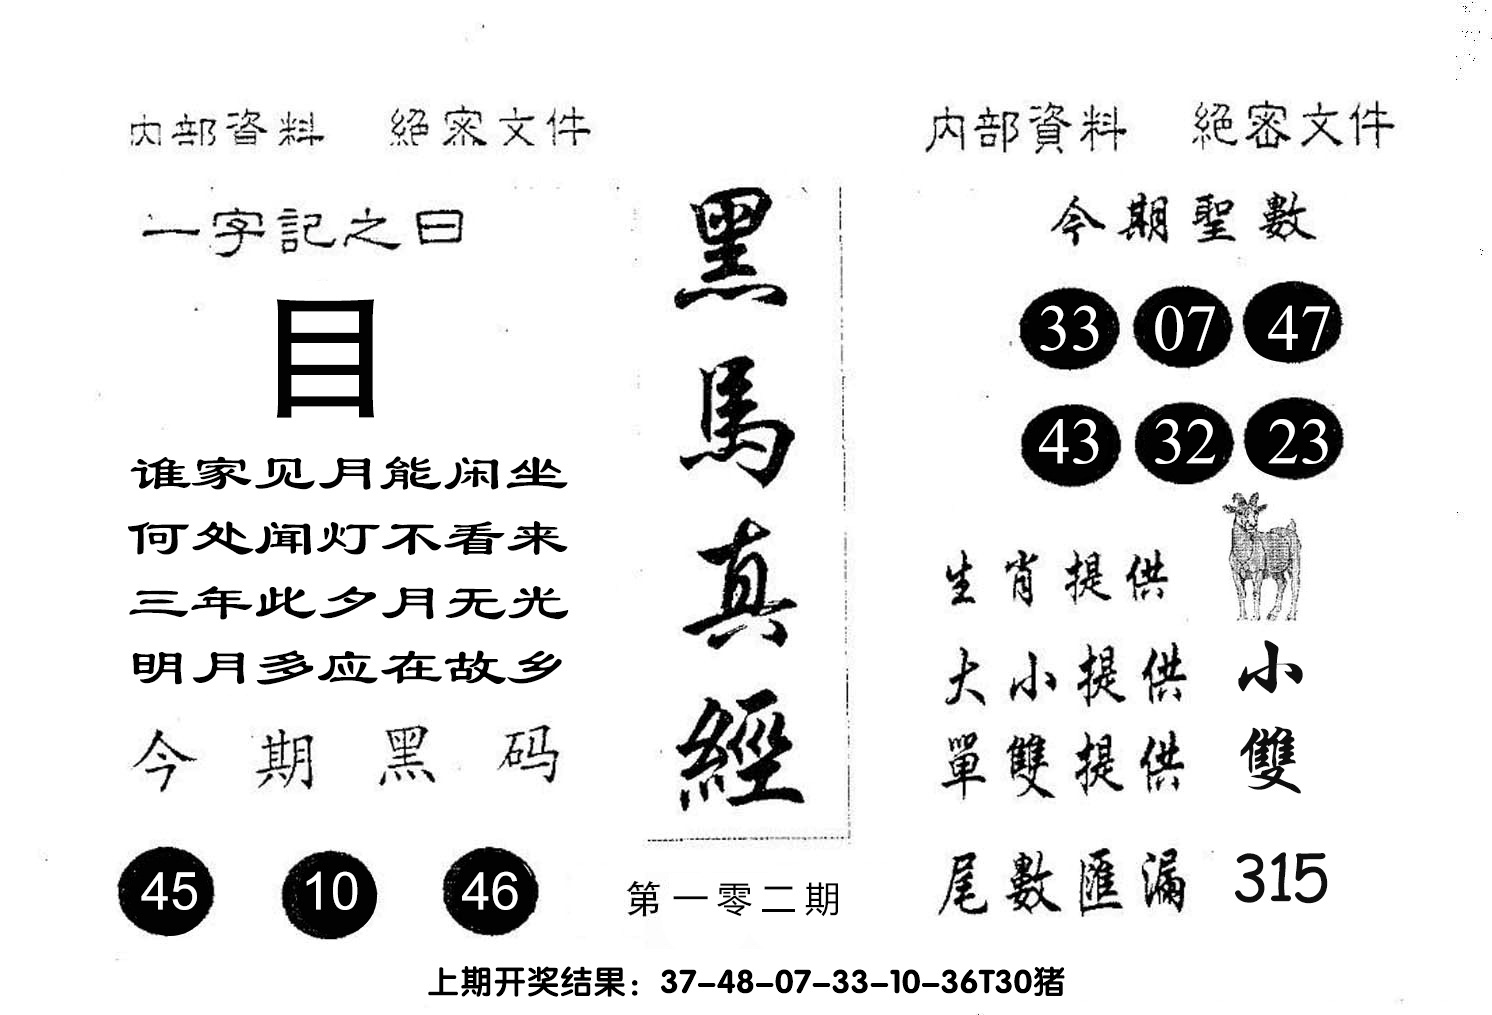 内部資料 絕密文件
一字記之曰
目
谁家见月能闲坐
何处闻灯不看来
三年此夕月无光
明月多应在故乡
今期黑码
45 10 46
黑馬真經
第一零二期
内部資料 絕密文件
今期聖數
33 07 47
43 32 23
生肖提供
大小提供 小
單雙提供 雙
尾數匯漏 315
上期开奖结果：37-48-07-33-10-36T30猪